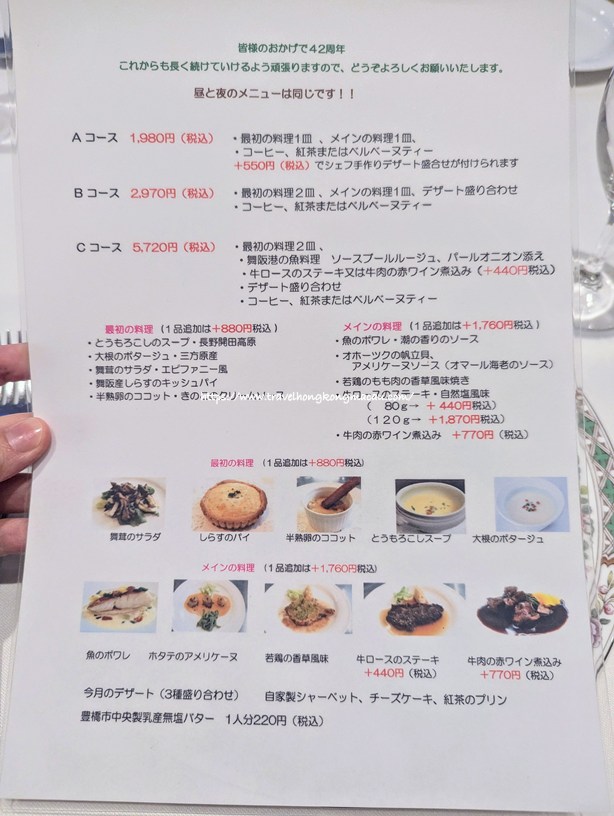 皆様のおかげで42周年
これからも長く続けていけるよう頑張りますので、どうぞよろしくお願いいたします。
昼と夜のメニューは同じです！！
Aコース 1,980円（税込） ・最初の料理1皿 、メインの料理1皿、
・コーヒー、紅茶またはベルベーヌティー
＋550円（税込）でシェフ手作りデザート盛合せが付けられます
Bコース 2,970円（税込） ・最初の料理2皿 、メインの料理1皿、デザート盛り合わせ
・コーヒー、紅茶またはベルベーヌティー
Cコース 5,720円（税込） ・最初の料理2皿 、
・舞阪港の魚料理 ソースブールルージュ、パールオニオン添え
・牛ロースのステーキ又は牛肉の赤ワイン煮込み（＋440円税込）
・デザート盛り合わせ
・コーヒー、紅茶またはベルベーヌティー
最初の料理（1品追加は＋880円税込）
・とうもろこしのスープ・長野開田高原
・大根のポタージュ・三方原産
・舞茸のサラダ・エピファニー風
・舞阪産しらすのキッシュパイ
・半熟卵のココット・きの
メインの料理（1品追加は＋1,760円税込 ）
・魚のポワレ・潮の香りのソース
・オホーツクの帆立貝、
アメリケーヌソース（オマール海老のソース）
・若鶏のもも肉の香草風味焼き
ステーキ・自然塩風味
（ 80g→ ＋440円税込）
（120g→ ＋1,870円税込）
・牛肉の赤ワイン煮込み ＋770円（税込）
https://www.travelhongkongmacau.com/
最初の料理 （1品追加は＋880円税込）
舞茸のサラダ しらすのパイ 半熟卵のココット とうもろこしスープ 大根のポタージュ
メインの料理 （1品追加は＋1,760円税込）
魚のポワレ ホタテのアメリケーヌ 若鶏の香草風味 牛ロースのステーキ 牛肉の赤ワイン煮込み
＋440円（税込） ＋770円（税込）
今月のデザート（3種盛り合わせ） 自家製シャーベット、チーズケーキ、紅茶のプリン
豊橋市中央製乳産無塩バター 1人分220円（税込）